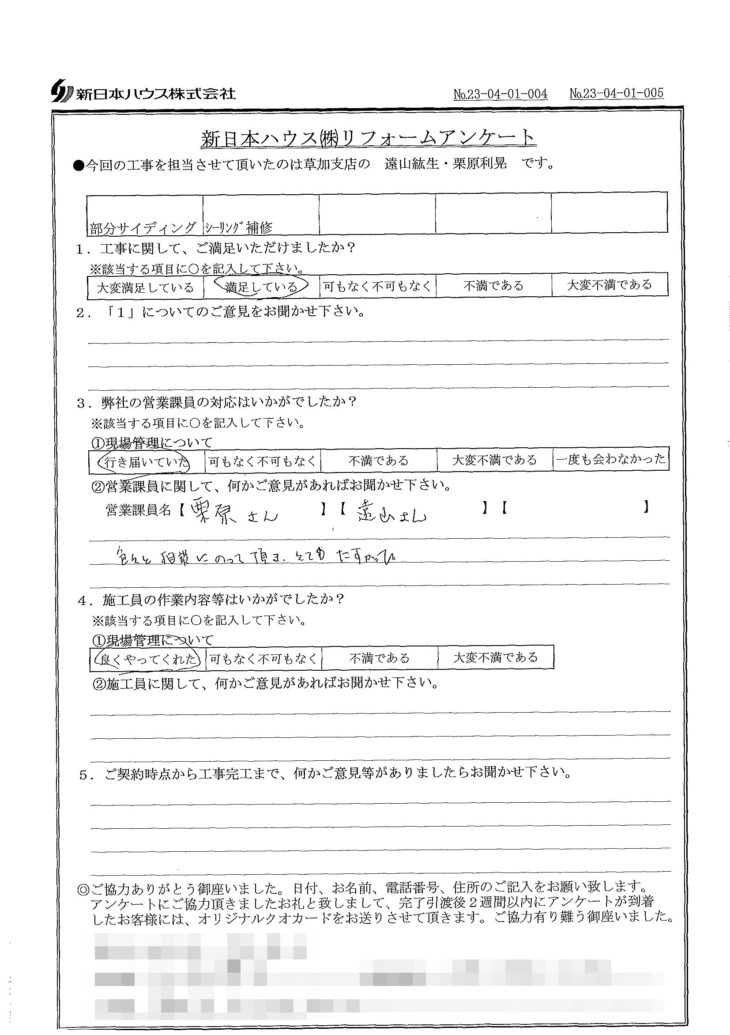 新日本ハウス株式会社 No.23-04-01-004 No.23-04-01-005
新日本ハウス㈱リフォームアンケート
●今回の工事を担当させて頂いたのは草加支店の 遠山紘生・栗原利晃 です。
部分サイディング ｼｰﾘﾝｸﾞ補修
1．工事に関して、ご満足いただけましたか？
※該当する項目に○を記入して下さい。
大変満足している 満足している 可もなく不可もなく 不満である 大変不満である
2．「1」についてのご意見をお聞かせ下さい。
3．弊社の営業課員の対応はいかがでしたか？
※該当する項目に○を記入して下さい。
①現場管理について
行き届いていた 可もなく不可もなく 不満である 大変不満である 一度も会わなかった
②営業課員に関して、何かご意見があればお聞かせ下さい。
営業課員名【 栗原さん 】【 遠山さん 】【 】
色々と相談にのって頂き、とてもたすかった
4．施工員の作業内容等はいかがでしたか？
※該当する項目に○を記入して下さい。
①現場管理について
良くやってくれた 可もなく不可もなく 不満である 大変不満である
②施工員に関して、何かご意見があればお聞かせ下さい。
5．ご契約時点から工事完工まで、何かご意見等がありましたらお聞かせ下さい。
◎ご協力ありがとう御座いました。日付、お名前、電話番号、住所のご記入をお願い致します。
アンケートにご協力頂きましたお礼と致しまして、完了引渡後２週間以内にアンケートが到着
したお客様には、オリジナルクオカードをお送りさせて頂きます。ご協力有り難う御座いました。